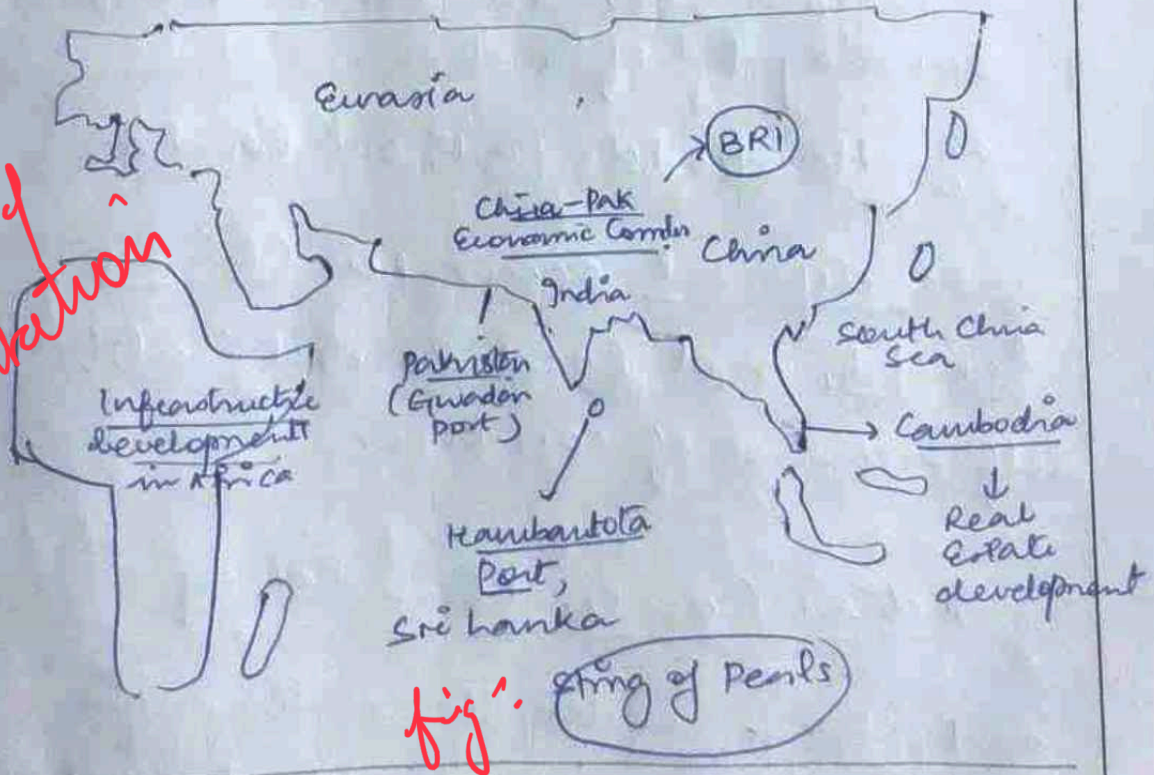 Eurasia
BRI
China-Pak
Economic Corridor
China
India
South China
Sea
Pakistan
(Gwadar
port)
Infrastructure
development
in Africa
Cambodia
Real
Estate
development
Hambantota
Port,
Sri Lanka
fig:
String of Pearls